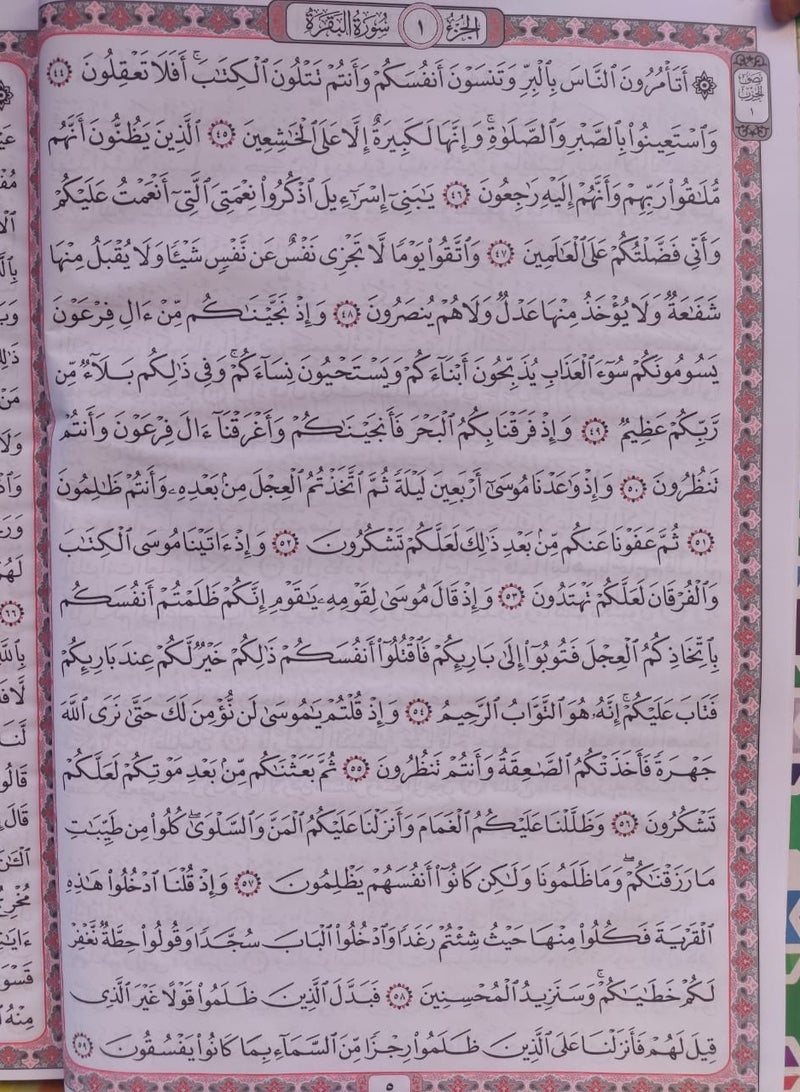 الجزء ١ سورة البقرة
نصف
الحزب
١
۞ أَتَأْمُرُونَ ٱلنَّاسَ بِٱلْبِرِّ وَتَنسَوْنَ أَنفُسَكُمْ وَأَنتُمْ تَتْلُونَ ٱلْكِتَٰبَۚ أَفَلَا تَعْقِلُونَ ٤٤
وَٱسْتَعِينُوا۟ بِٱلصَّبْرِ وَٱلصَّلَوٰةِۚ وَإِنَّهَا لَكَبِيرَةٌ إِلَّا عَلَى ٱلْخَٰشِعِينَ ٤٥ ٱلَّذِينَ يَظُنُّونَ أَنَّهُم
مُّلَٰقُوا۟ رَبِّهِمْ وَأَنَّهُمْ إِلَيْهِ رَٰجِعُونَ ٤٦ يَٰبَنِىٓ إِسْرَٰٓءِيلَ ٱذْكُرُوا۟ نِعْمَتِىَ ٱلَّتِىٓ أَنْعَمْتُ عَلَيْكُمْ
وَأَنِّى فَضَّلْتُكُمْ عَلَى ٱلْعَٰلَمِينَ ٤٧ وَٱتَّقُوا۟ يَوْمًا لَّا تَجْزِى نَفْسٌ عَن نَّفْسٍ شَيْـًٔا وَلَا يُقْبَلُ مِنْهَا
شَفَٰعَةٌ وَلَا يُؤْخَذُ مِنْهَا عَدْلٌ وَلَا هُمْ يُنصَرُونَ ٤٨ وَإِذْ نَجَّيْنَٰكُم مِّنْ ءَالِ فِرْعَوْنَ
يَسُومُونَكُمْ سُوٓءَ ٱلْعَذَابِ يُذَبِّحُونَ أَبْنَآءَكُمْ وَيَسْتَحْيُونَ نِسَآءَكُمْۚ وَفِى ذَٰلِكُم بَلَآءٌ مِّن
رَّبِّكُمْ عَظِيمٌ ٤٩ وَإِذْ فَرَقْنَا بِكُمُ ٱلْبَحْرَ فَأَنجَيْنَٰكُمْ وَأَغْرَقْنَآ ءَالَ فِرْعَوْنَ وَأَنتُمْ
تَنظُرُونَ ٥٠ وَإِذْ وَٰعَدْنَا مُوسَىٰٓ أَرْبَعِينَ لَيْلَةً ثُمَّ ٱتَّخَذْتُمُ ٱلْعِجْلَ مِنۢ بَعْدِهِۦ وَأَنتُمْ ظَٰلِمُونَ
٥١ ثُمَّ عَفَوْنَا عَنكُم مِّنۢ بَعْدِ ذَٰلِكَ لَعَلَّكُمْ تَشْكُرُونَ ٥٢ وَإِذْ ءَاتَيْنَا مُوسَى ٱلْكِتَٰبَ
وَٱلْفُرْقَانَ لَعَلَّكُمْ تَهْتَدُونَ ٥٣ وَإِذْ قَالَ مُوسَىٰ لِقَوْمِهِۦ يَٰقَوْمِ إِنَّكُمْ ظَلَمْتُمْ أَنفُسَكُم
بِٱتِّخَاذِكُمُ ٱلْعِجْلَ فَتُوبُوٓا۟ إِلَىٰ بَارِئِكُمْ فَٱقْتُلُوٓا۟ أَنفُسَكُمْ ذَٰلِكُمْ خَيْرٌ لَّكُمْ عِندَ بَارِئِكُمْ
فَتَابَ عَلَيْكُمْۚ إِنَّهُۥ هُوَ ٱلتَّوَّابُ ٱلرَّحِيمُ ٥٤ وَإِذْ قُلْتُمْ يَٰمُوسَىٰ لَن نُّؤْمِنَ لَكَ حَتَّىٰ نَرَى ٱللَّهَ
جَهْرَةً فَأَخَذَتْكُمُ ٱلصَّٰعِقَةُ وَأَنتُمْ تَنظُرُونَ ٥٥ ثُمَّ بَعَثْنَٰكُم مِّنۢ بَعْدِ مَوْتِكُمْ لَعَلَّكُمْ
تَشْكُرُونَ ٥٦ وَظَلَّلْنَا عَلَيْكُمُ ٱلْغَمَامَ وَأَنزَلْنَا عَلَيْكُمُ ٱلْمَنَّ وَٱلسَّلْوَىٰۖ كُلُوا۟ مِن طَيِّبَٰتِ
مَا رَزَقْنَٰكُمْۖ وَمَا ظَلَمُونَا وَلَٰكِن كَانُوٓا۟ أَنفُسَهُمْ يَظْلِمُونَ ٥٧ وَإِذْ قُلْنَا ٱدْخُلُوا۟ هَٰذِهِ
ٱلْقَرْيَةَ فَكُلُوا۟ مِنْهَا حَيْثُ شِئْتُمْ رَغَدًا وَٱدْخُلُوا۟ ٱلْبَابَ سُجَّدًا وَقُولُوا۟ حِطَّةٌ نَّغْفِرْ
لَكُمْ خَطَٰيَٰكُمْۚ وَسَنَزِيدُ ٱلْمُحْسِنِينَ ٥٨ فَبَدَّلَ ٱلَّذِينَ ظَلَمُوا۟ قَوْلًا غَيْرَ ٱلَّذِى
قِيلَ لَهُمْ فَأَنزَلْنَا عَلَى ٱلَّذِينَ ظَلَمُوا۟ رِجْزًا مِّنَ ٱلسَّمَآءِ بِمَا كَانُوا۟ يَفْسُقُونَ ٥٩
٥